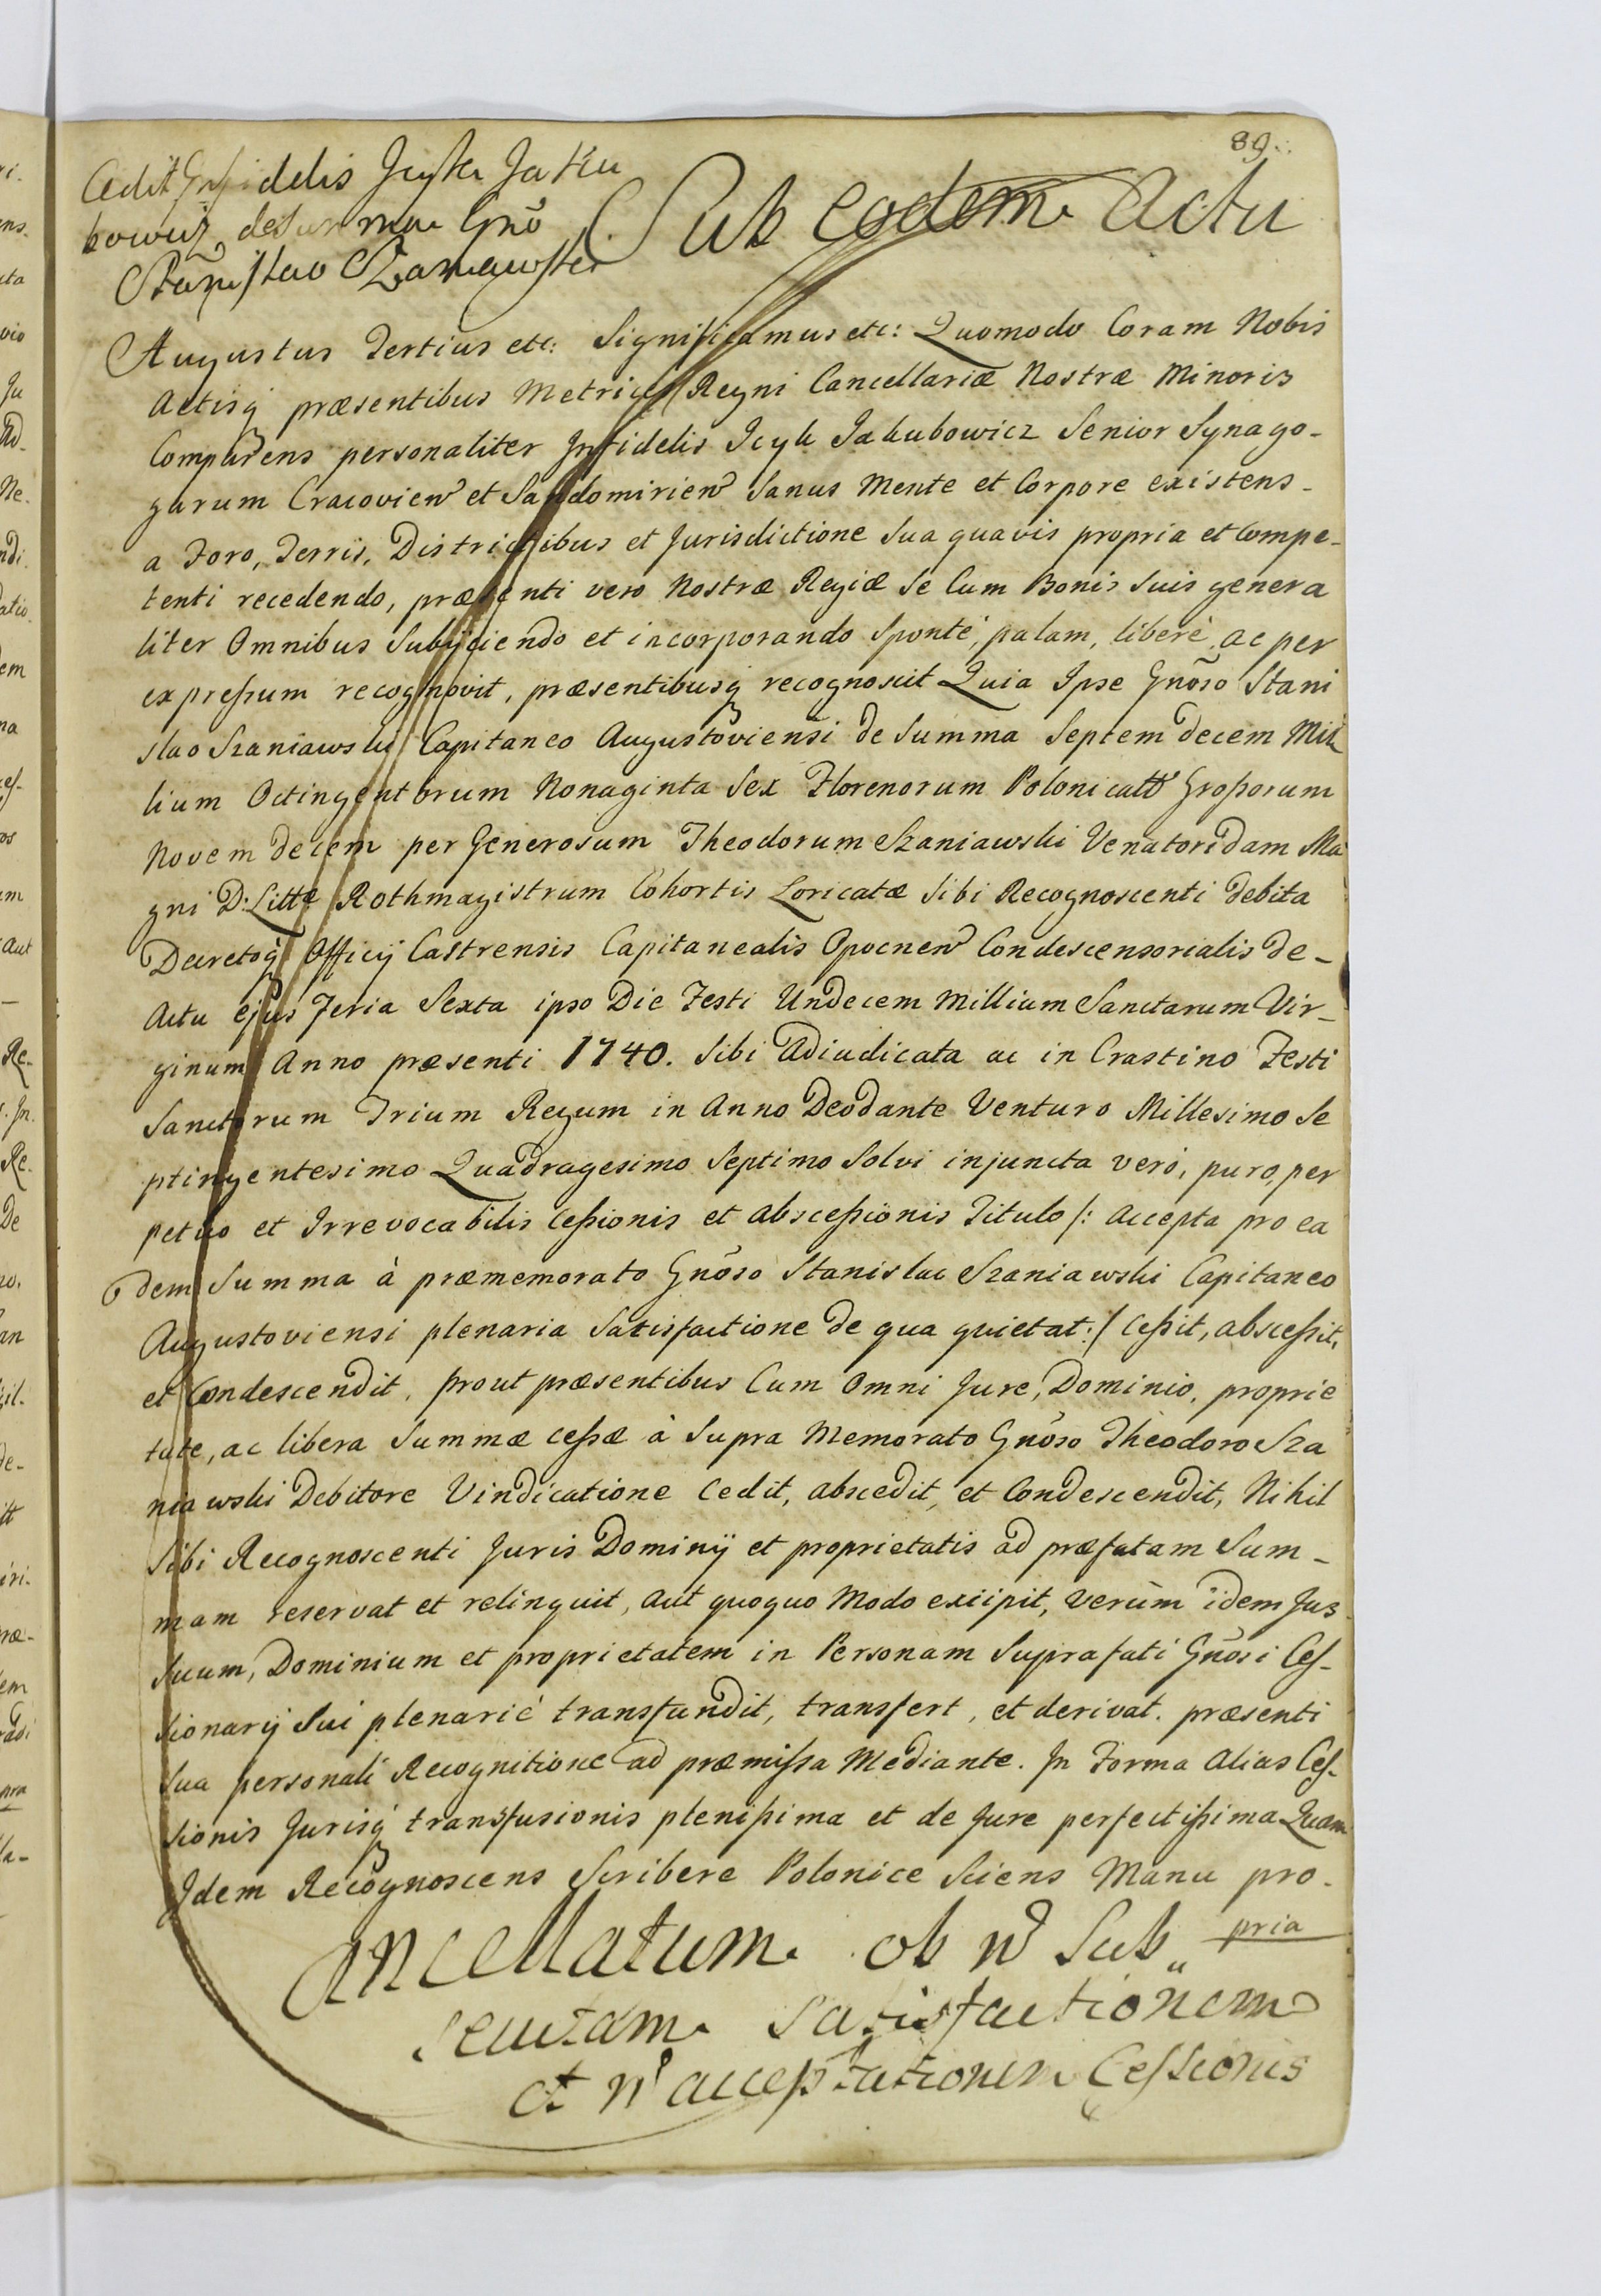 89.
Cedit Infidelis Icyk Jaku
bowicz de Summa Gnõ
Stanislao Szaniawski
Sub eodem Actu
Augustus Tertius etc: Significamus etc: Quomodo Coram Nobis
Actisq præsentibus Metrices Regni Cancellariæ Nostræ Minoris
Comparens personaliter Infidelis Icyk Jakubowicz Senior Synago-
garum Cracovien et Sandomirien Sanus Mente et Corpore existens-
a Foro, Terris, Districtibus et Jurisdictione Sua quavis propria et Compe-
tenti recedendo, præsenti vero Nostræ Regiæ Se Cum Bonis Suis genera
liter Omnibus Subijciendo et incorporando Sponté, palam, liberè, ac per
expreßum recognovit, præsentibusq recognoscit Quia Ipse Gnõso Stani
slao Szaniawski Capitaneo Augustoviensi de Summa Septem decem Mil
lium Octingentorum Nonaginta Sex Florenorum Polonicall Großorum
Novem decem per Generosum Theodorum Szaniawski Venatoridam Ma
gni D: Littæ Rothmagistrum Cohortis Loricatæ Sibi Recognoscenti debita
Decretoq Officij Castrensis Capitanealis Opocnen Condescensorialis de-
Actu ejus Feria Sexta ipso Die Festi Undecem Millium Sanctarum Vir-
ginum Anno præsenti 1740. Sibi Adiudicata ac in Crastino Festi
Sanctorum Trium Regum in Anno Deo dante Venturo Millesimo Se
ptingentesimo Quadragesimo Septimo Solvi injuncta veró, puro, per
petuo et Irrevocabilis Ceßionis et absceßionis Titulo /: accepta pro ea
dem Summa à præmemorato Gnõso Stanislao Szaniawski Capitaneo
Augustoviensi plenaria Satisfactione de qua quietat :/ Ceßit, absceßit,
et Condescendit, prout præsentibus Cum Omni Jure, Dominio, proprie
tate, ac libera Summæ ceßæ à Supra Memorato Gnõso Theodoro Sza
niawski Debitore Vindicatione Cedit, abscedit, et Condescendit, Nihil
Sibi Recognoscenti Juris Dominij et proprietatis ad præfatam Sum-
mam reservat et relinquit, aut quoquo Modo excipit, verùm idem Jus
Suum, Dominium et proprietatem in Personam Suprafati Gnõsi Ces-
sionarij Sui plenarié transfundit, transfert, et derivat. præsenti
Sua personali Recognitione ad præmißa Mediante. In Forma Alias Ces-
sionis Jurisq transfusionis plenißima et de Jure perfectißima Quam
Idem Recognoscens Scribere Polonice Sciens Manu pro-
pria
Cancellatum ob n Sub
secutam Satisfactionem
et n acceptationem Cessionis